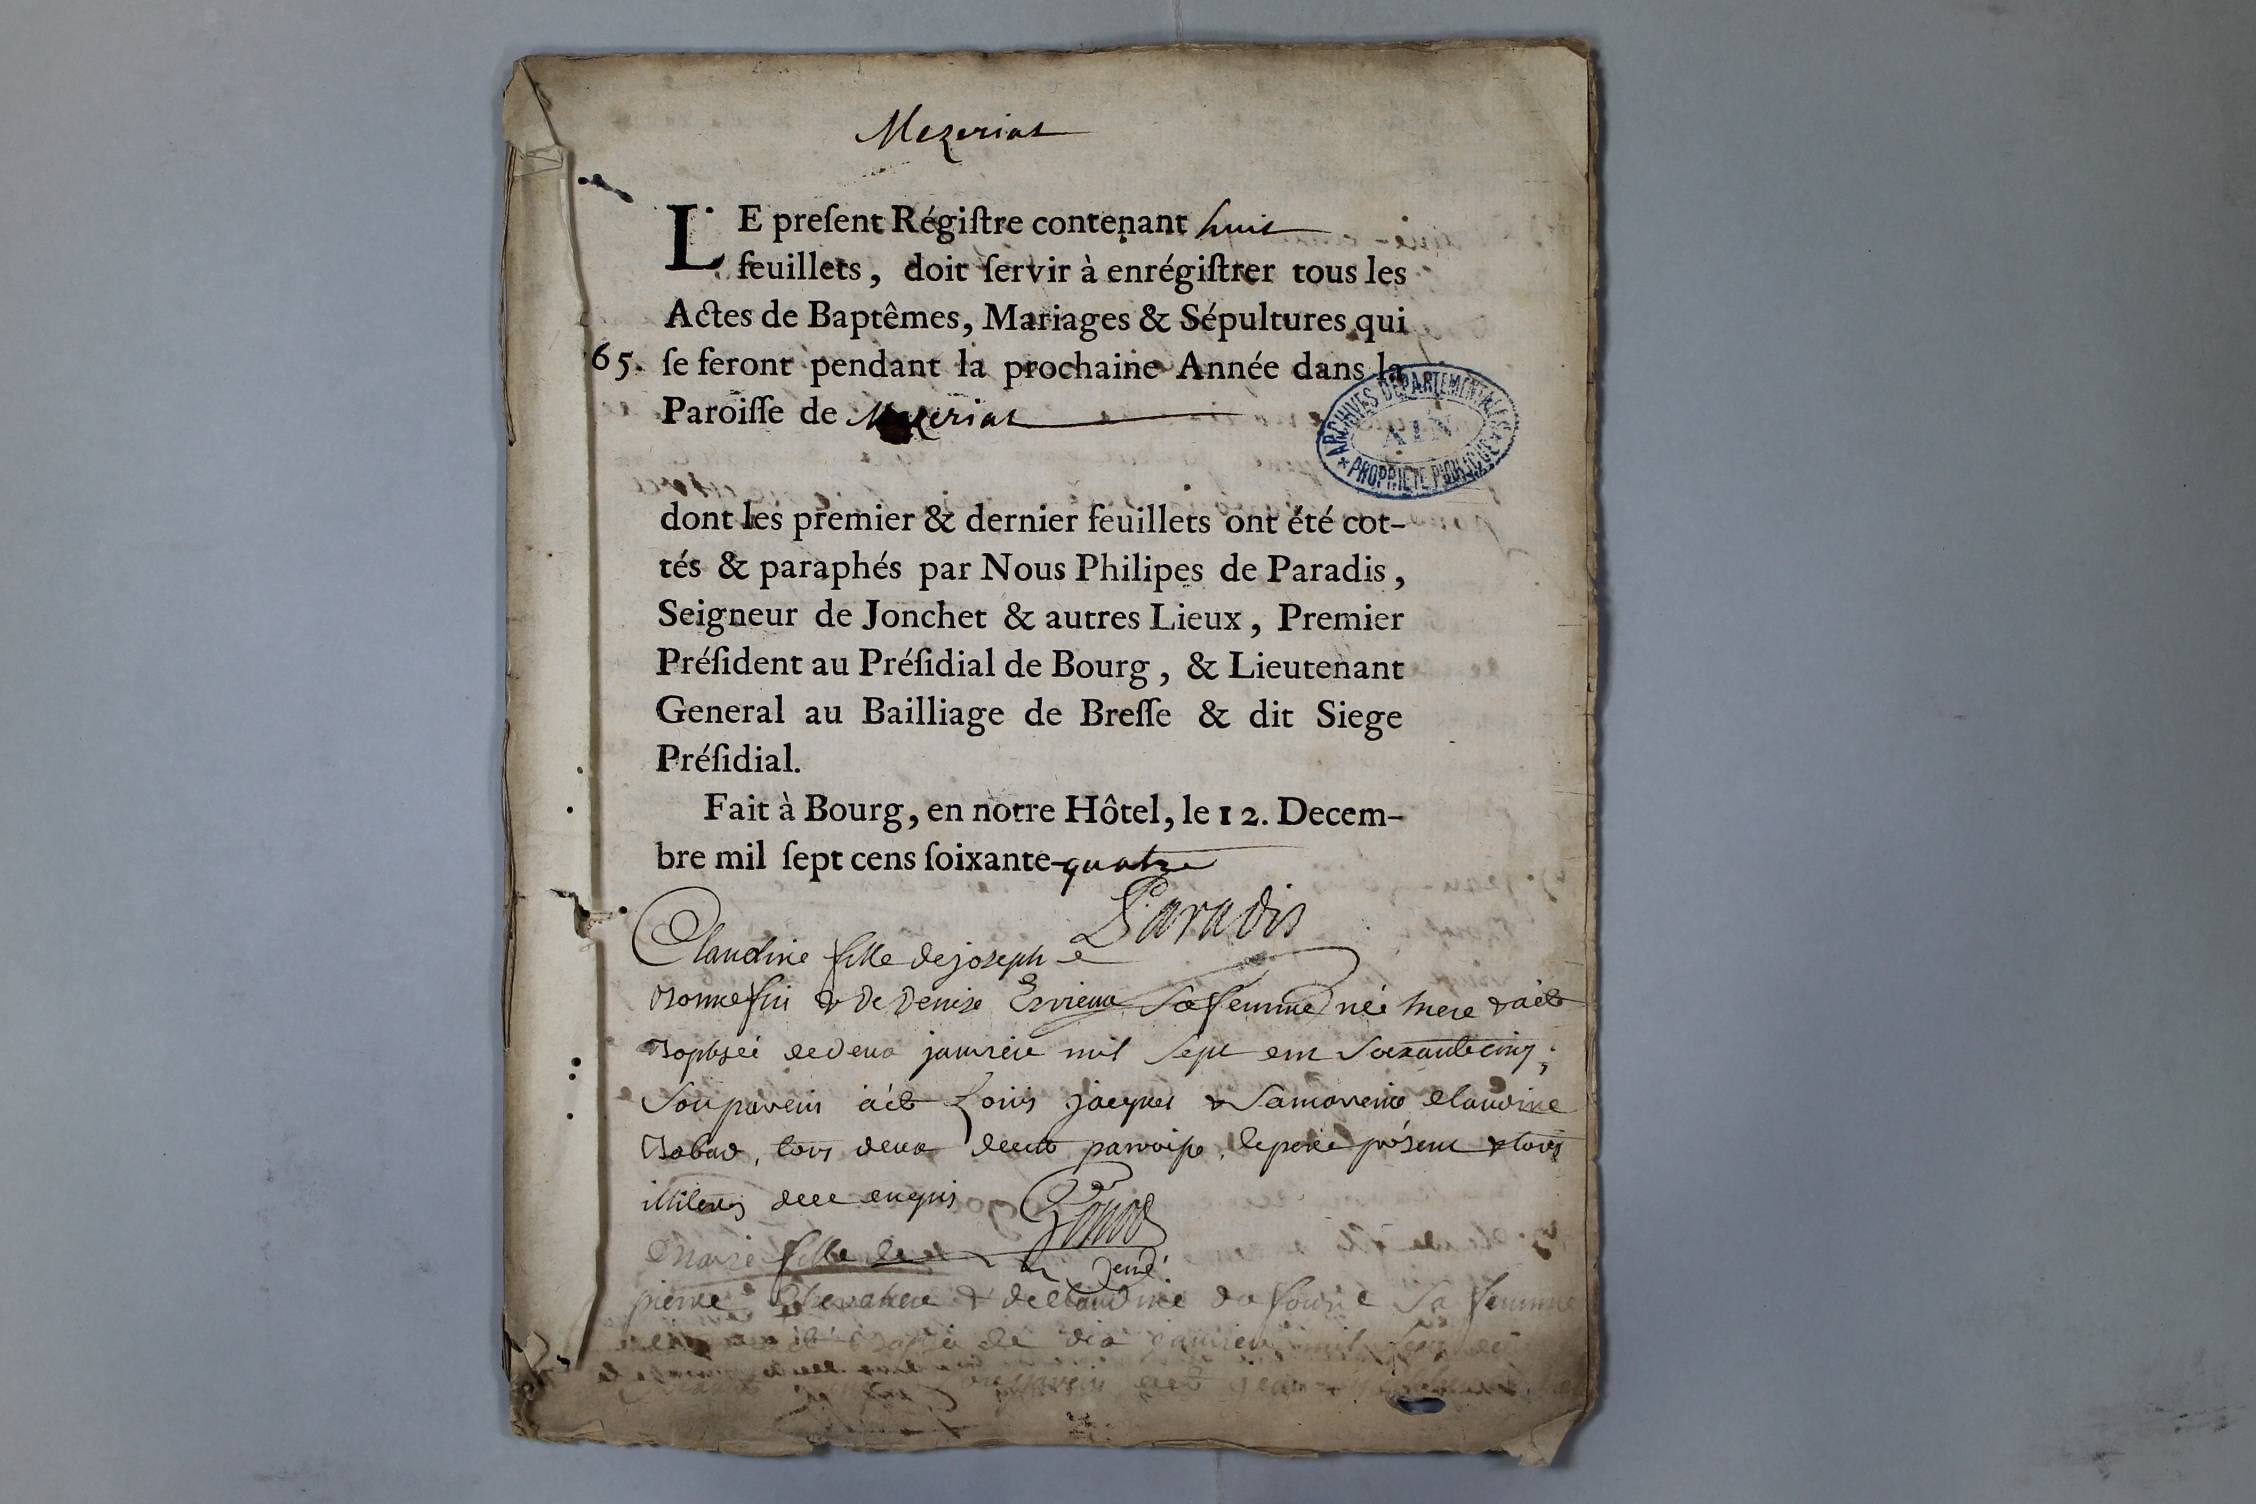 Mezeriat
LE preſent Régiſtre contenant huit
feuillets, doit ſervir à enrégiſtrer tous les
Actes de Baptêmes, Mariages & Sépultures qui
65. ſe feront pendant la prochaine Année dans la
Paroiſſe de Mezeriat
ARCHIVES DEPARTEMENTALES
AIN
* PROPRIETE PUBLIQUE *
dont les premier & dernier feuillets ont été cot-
tés & paraphés par Nous Philipes de Paradis,
Seigneur de Jonchet & autres Lieux, Premier
Préſident au Préſidial de Bourg, & Lieutenant
General au Bailliage de Breſſe & dit Siege
Préſidial.
Fait à Bourg, en notre Hôtel, le 12. Decem-
bre mil ſept cens ſoixante-quatre
Paradis
Claudine fille de joseph
& de Denise sa femme née hier & a été
deux janvier mil sept cent soixante cinq;
Son parein a ét Loüis jacques & Sa mareine Claudine
tous deux paroisse. le pere présent & tous
illiteres enquis
Marie fille de
pierre & de Claudine sa femme
le dix janvier mil sept